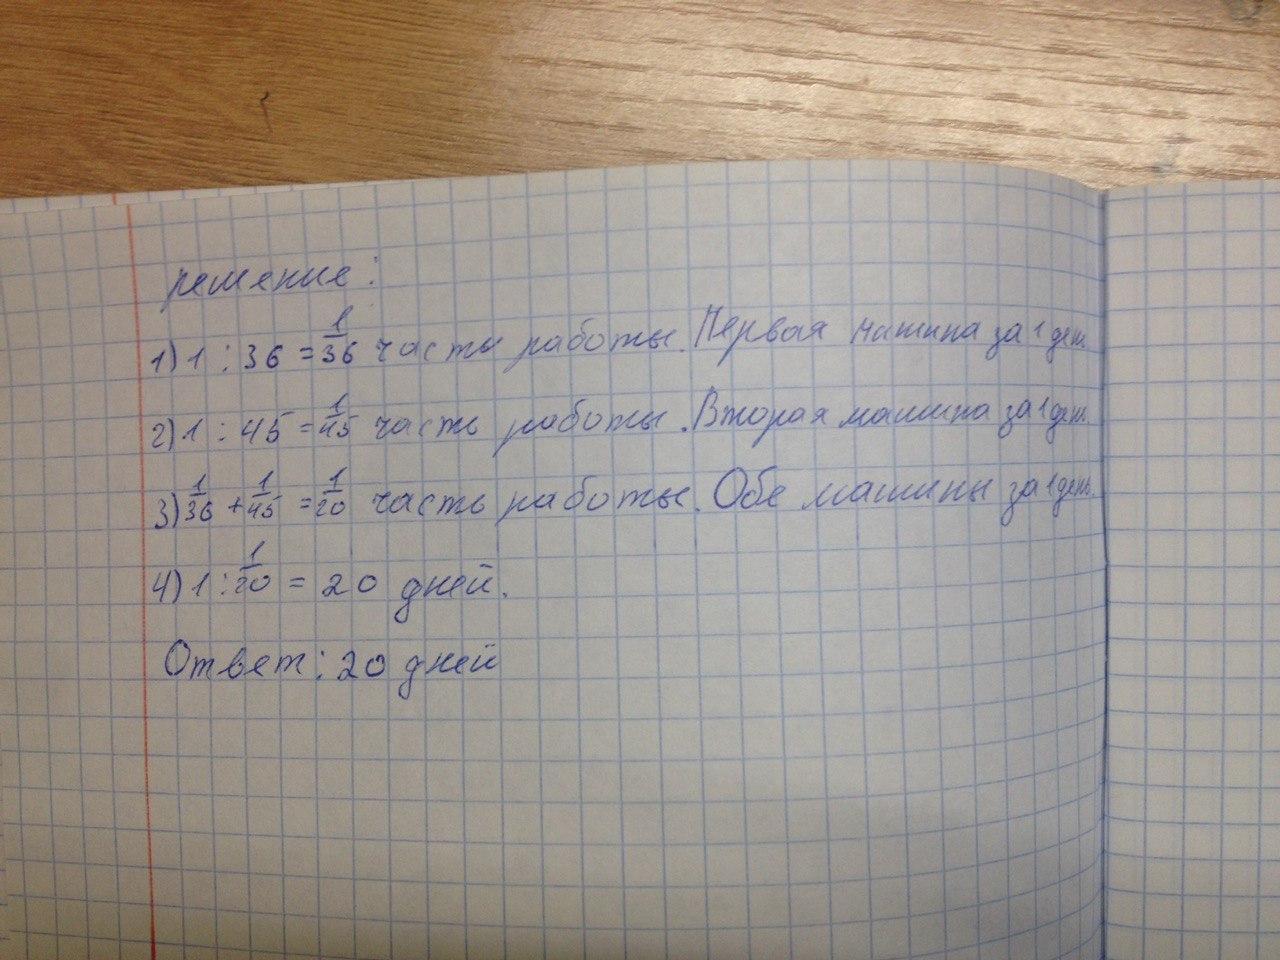 решение:
1) 1 : 36 = 1/36 часть работы. Первая машина за 1 день.
2) 1 : 45 = 1/45 часть работы. Вторая машина за 1 день.
3) 1/36 + 1/45 = 1/20 часть работы. Обе машины за 1 день.
4) 1 : 1/20 = 20 дней.
Ответ: 20 дней